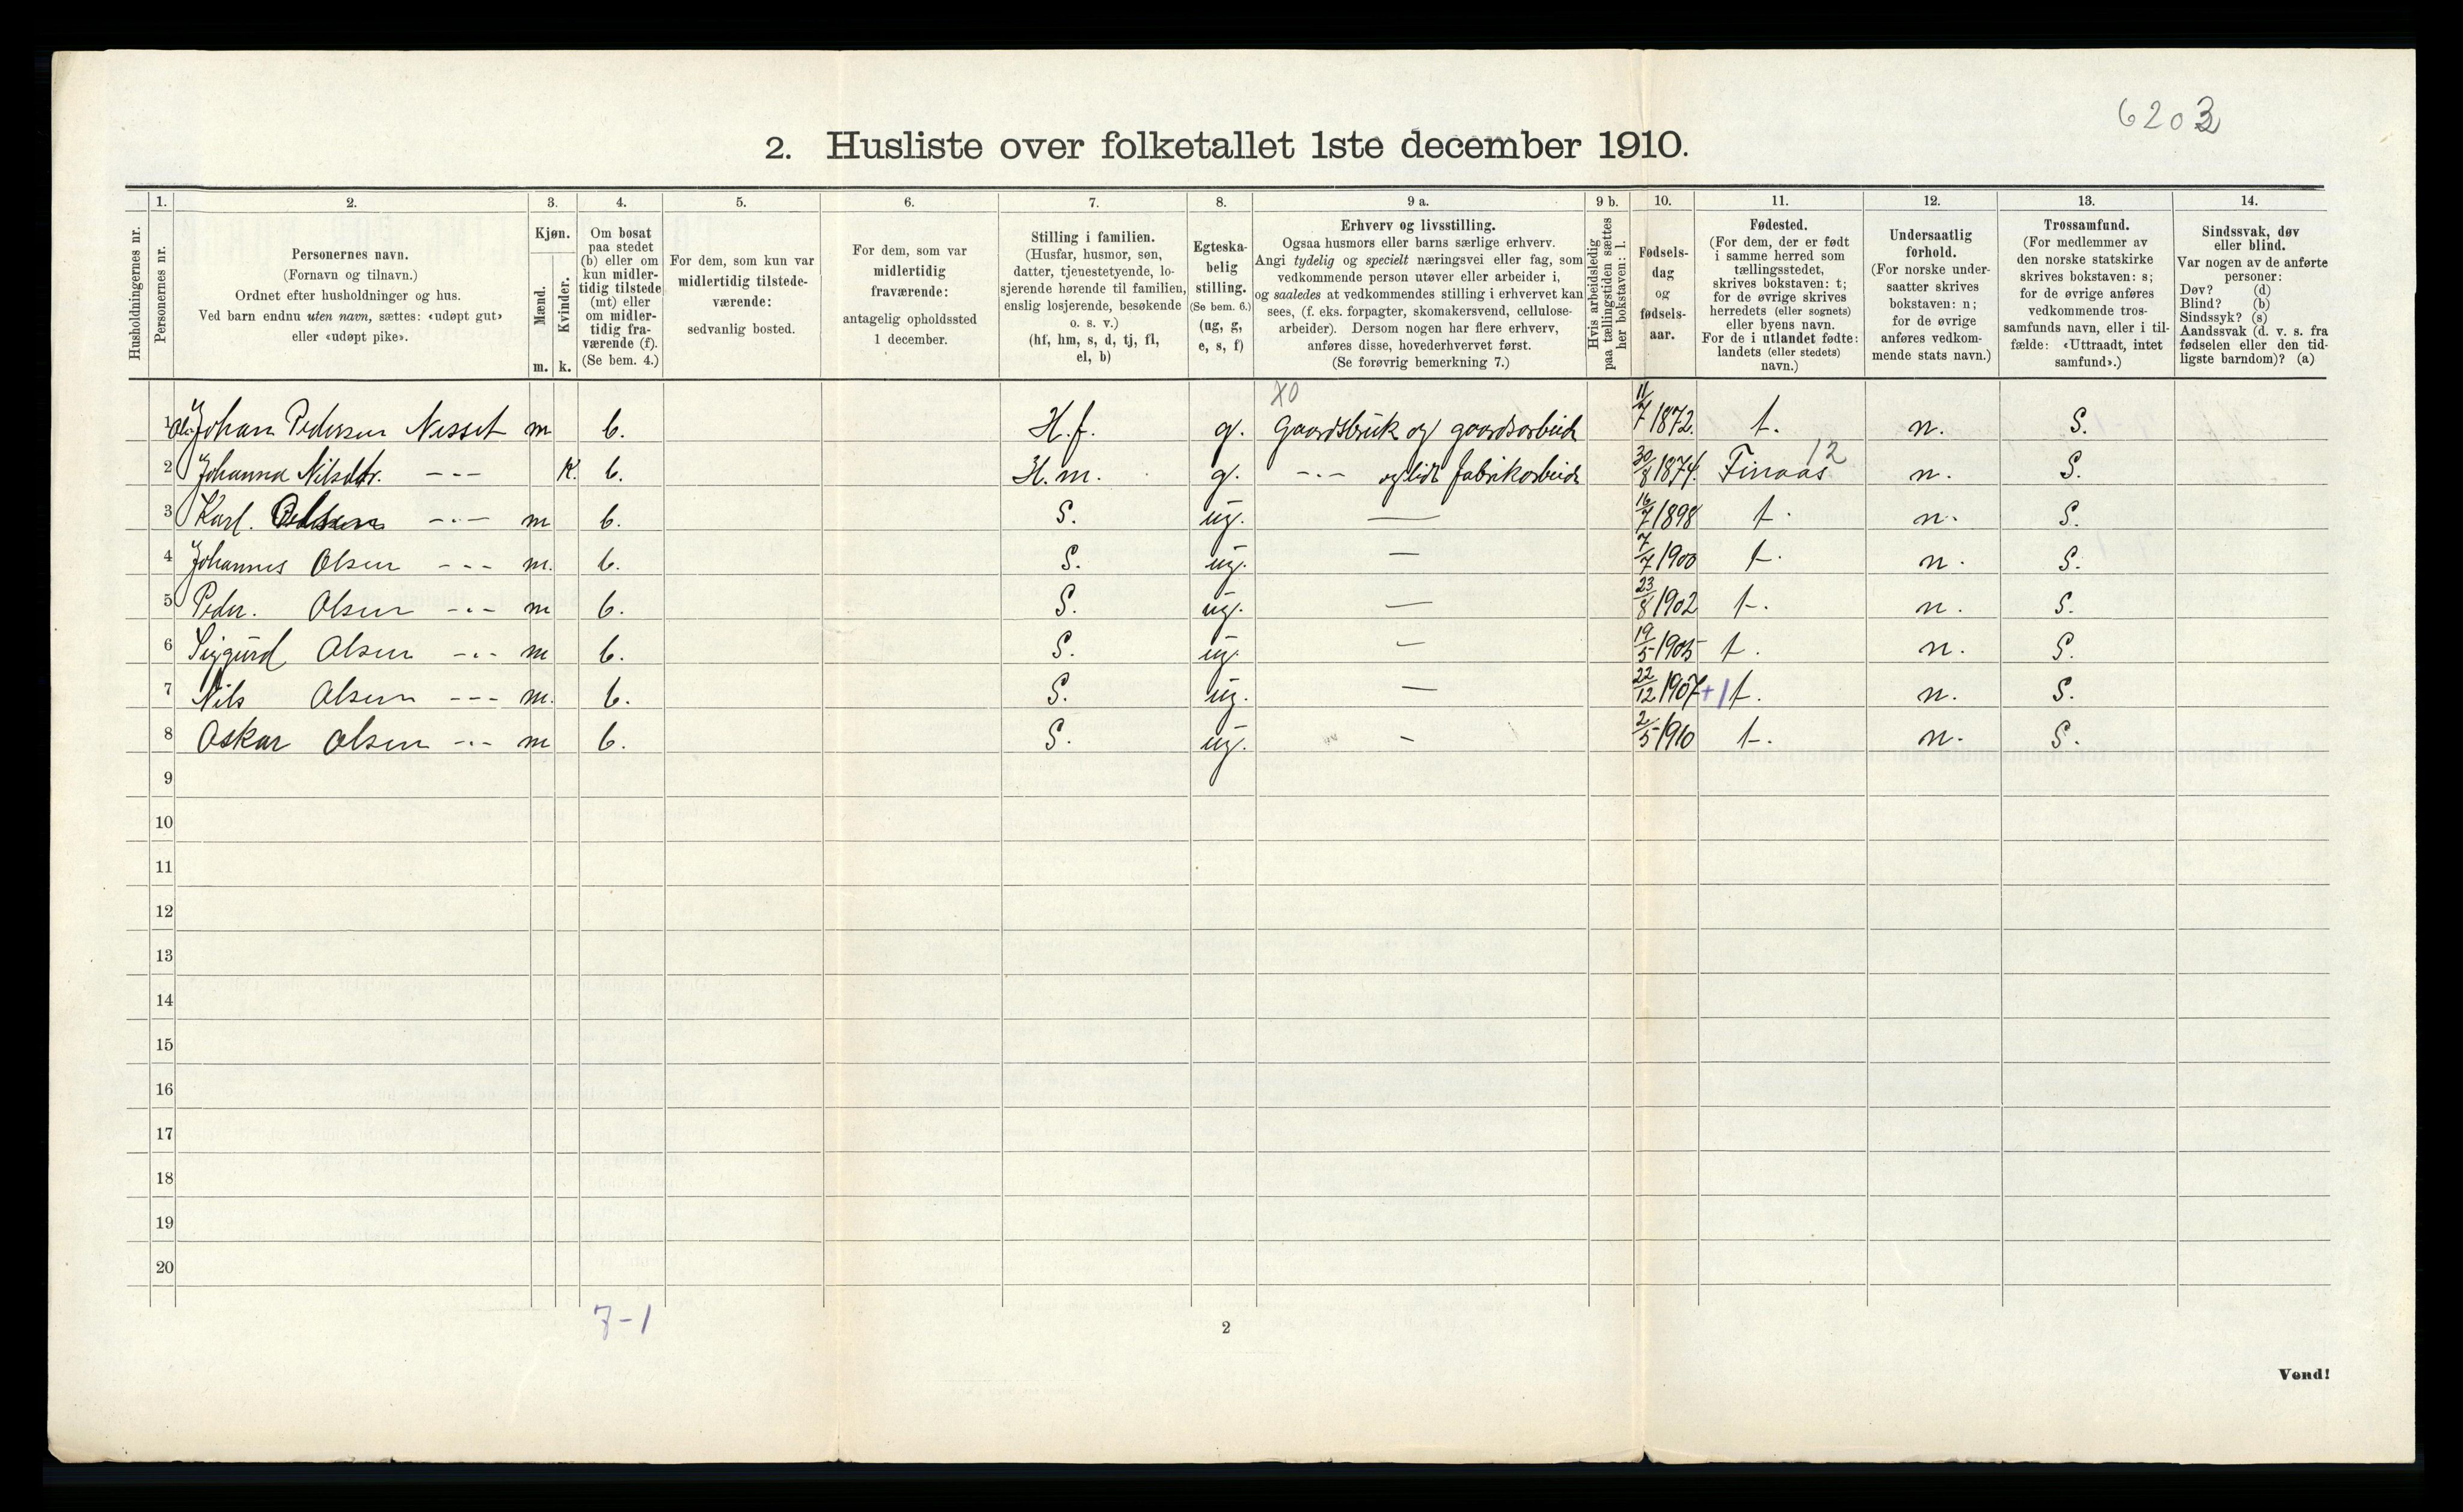 6203
2. Husliste over folketallet 1ste december 1910.
Husholdningernes nr.
1.
Personernes nr.
2.
Personernes navn.
(Fornavn og tilnavn.)
Ordnet efter husholdninger og hus.
Ved barn endnu uten navn, sættes: «udøpt gut»
eller «udøpt pike».
3.
Kjøn.
Mænd.
Kvinder.
m. k.
4.
Om bosat
paa stedet
(b) eller om
kun midler-
tidig tilstede
(mt) eller
om midler-
tidig fra-
værende (f).
(Se bem. 4.)
5.
For dem, som kun var
midlertidig tilstede-
værende:
sedvanlig bosted.
6.
For dem, som var
midlertidig
fraværende:
antagelig opholdssted
1 december.
7.
Stilling i familien.
(Husfar, husmor, søn,
datter, tjenestetyende, lo-
sjerende hørende til familien,
enslig losjerende, besøkende
o. s. v.)
(hf, hm, s, d, tj, fl,
el, b)
8.
Egteska-
belig
stilling.
(Se bem. 6.)
(ug, g,
e, s, f)
9 a.
Erhverv og livsstilling.
Ogsaa husmors eller barns særlige erhverv.
Angi tydelig og specielt næringsvei eller fag, som
vedkommende person utøver eller arbeider i,
og saaledes at vedkommendes stilling i erhvervet kan
sees, (f. eks. forpagter, skomakersvend, cellulose-
arbeider). Dersom nogen har flere erhverv,
anføres disse, hovederhvervet først.
(Se forøvrig bemerkning 7.)
9 b.
Hvis arbeidsledig
paa tællingstiden sættes
her bokstaven: l.
10.
Fødsels-
dag
og
fødsels-
aar.
11.
Fødested.
(For dem, der er født
i samme herred som
tællingsstedet,
skrives bokstaven: t;
for de øvrige skrives
herredets (eller sognets)
eller byens navn.
For de i utlandet fødte:
landets (eller stedets)
navn.)
12.
Undersaatlig
forhold.
(For norske under-
saatter skrives
bokstaven: n;
for de øvrige
anføres vedkom-
mende stats navn.)
13.
Trossamfund.
(For medlemmer av
den norske statskirke
skrives bokstaven: s;
for de øvrige anføres
vedkommende tros-
samfunds navn, eller i til-
fælde: «Uttraadt, intet
samfund».)
14.
Sindssvak, døv
eller blind.
Var nogen av de anførte
personer:
Døv? (d)
Blind? (b)
Sindssyk? (s)
Aandssvak (d. v. s. fra
fødselen eller den tid-
ligste barndom)? (a)
X0
1 Ole Johan Pedersen Nesset m b. H.f. g. Gaardsbruk og gaardsarbeide 11/7 1872. t. n. S.
2 Johanna Nilsdtr. -"- K. b. H.m. g. -"- og lidt fabrikarbeide 30/8 1874. Finaas 12 n. S.
3 Karl. Olsen -"- m b. S. ug. — 16/7 1898 t. n. S.
4 Johannes Olsen -"- m. b. S. ug. — 7/7 1900 t. n. S.
5 Peder. Olsen -"- m b. S. ug. — 23/8 1902 t. n. S.
6 Sigurd Olsen -"- m b. S. ug. — 19/5 1905 t. n. S.
7 Nils Olsen -"- m. b. S. ug. — 22/12 1907 +1 t. n. S.
8 Oskar Olsen -"- m b. S. ug. - 2/5 1910 t. n. S.
9
10
11
12
13
14
15
16
17
18
19
20
7-1
2
Vend!